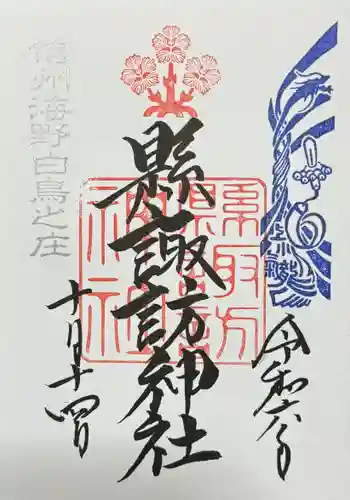 令和六年
縣諏訪神社
縣諏訪
神社
信州海野白鳥之庄
十月十四日